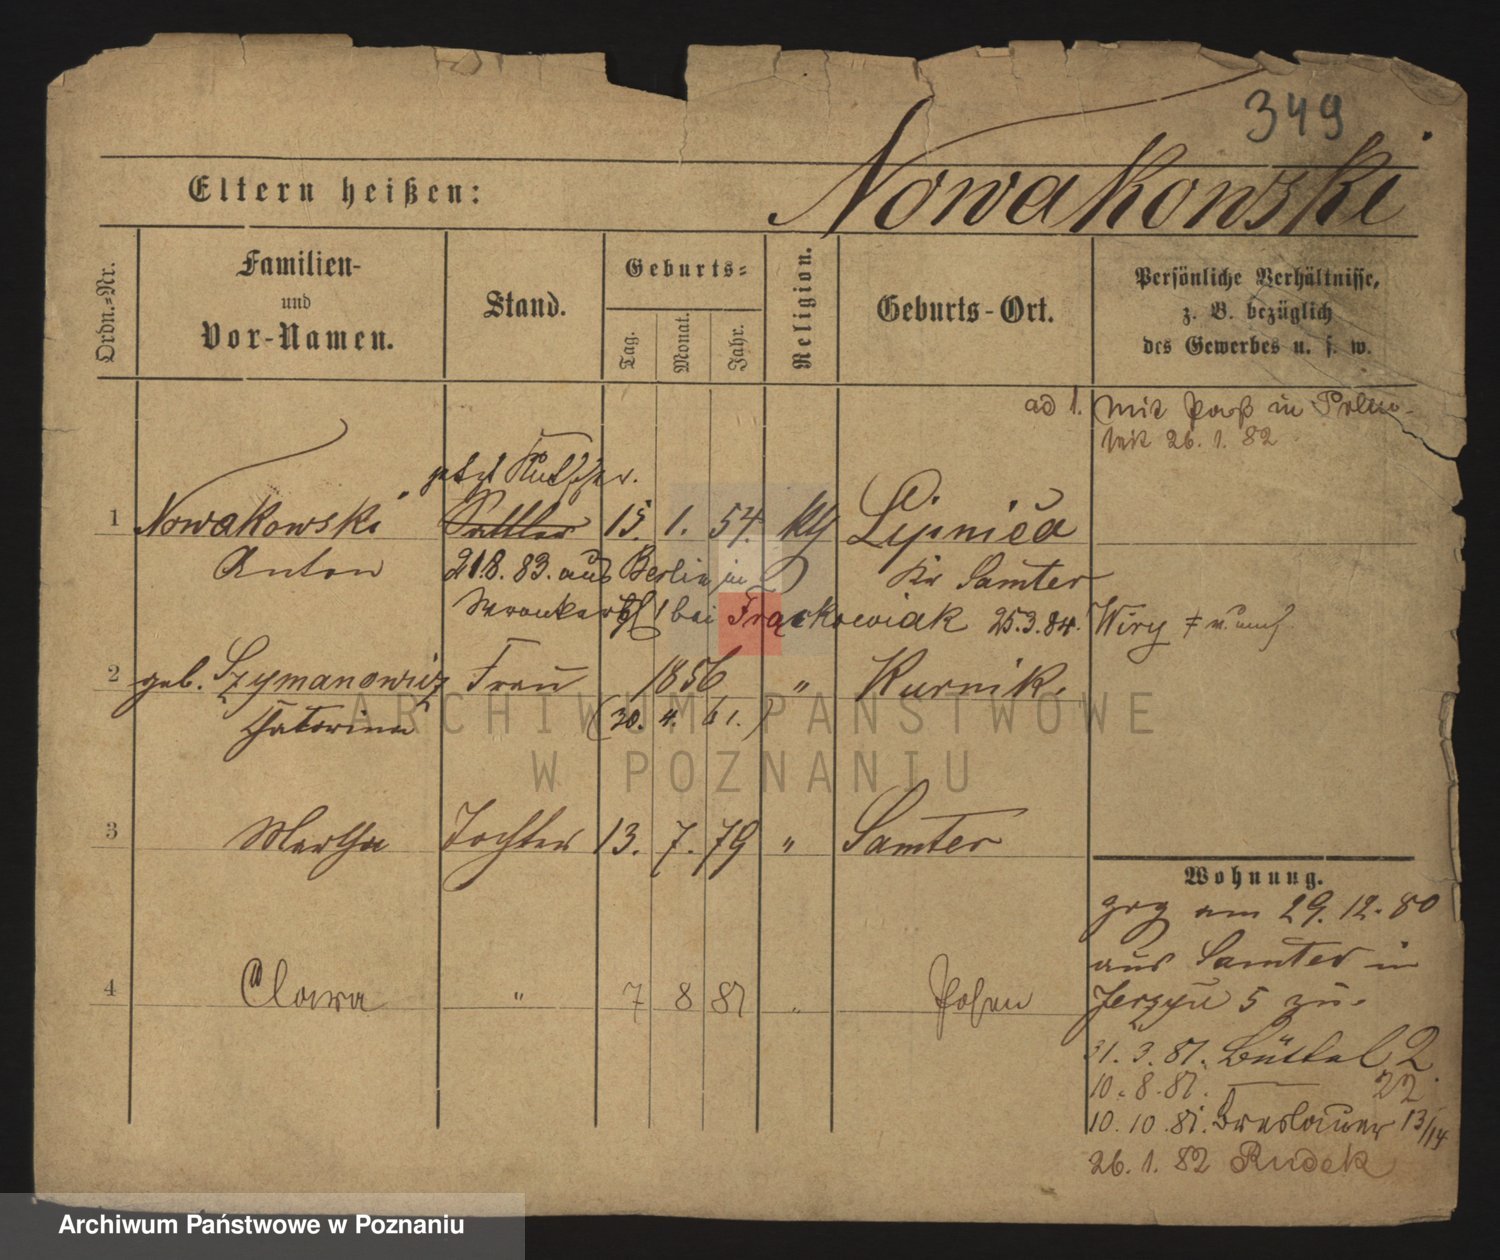 349
Nowakowski
Eltern heißen:
Ordn.=Nr.
Familien-
und
Vor-Namen.
Stand.
Geburts=
Tag.
Monat.
Jahr.
Religion.
Geburts-Ort.
Persönliche Verhältnisse,
z. B. bezüglich
des Gewerbes u. s. w.
ad 1. mit Paß in
seit 26. 1. 82
jetzt Kutscher.
1 Nowakowski Sattler 15. 1. 54. kth Lipnica
Anton 21.8.83. aus Berlin in Kr Samter
bei Frąckowiak 25.3.84. Wiry
2 geb. Szymanowicz Frau 1856 " Kurnik.
Catarina (30. 4. 61.)
ARCHIWUM PAŃSTWOWE
W POZNANIU
3 Martha Tochter 13. 7. 79 " Samter
Wohnung.
zog am 29. 12. 80
aus Samter in
4 Clara " 7 8 81 " Posen
Jerzyce 5 zu.
31. 3. 81. Büttel 2
10. 8. 81. — 22
10. 10. 81. Breslauer 13/14
26. 1. 82 Rudek
Archiwum Państwowe w Poznaniu